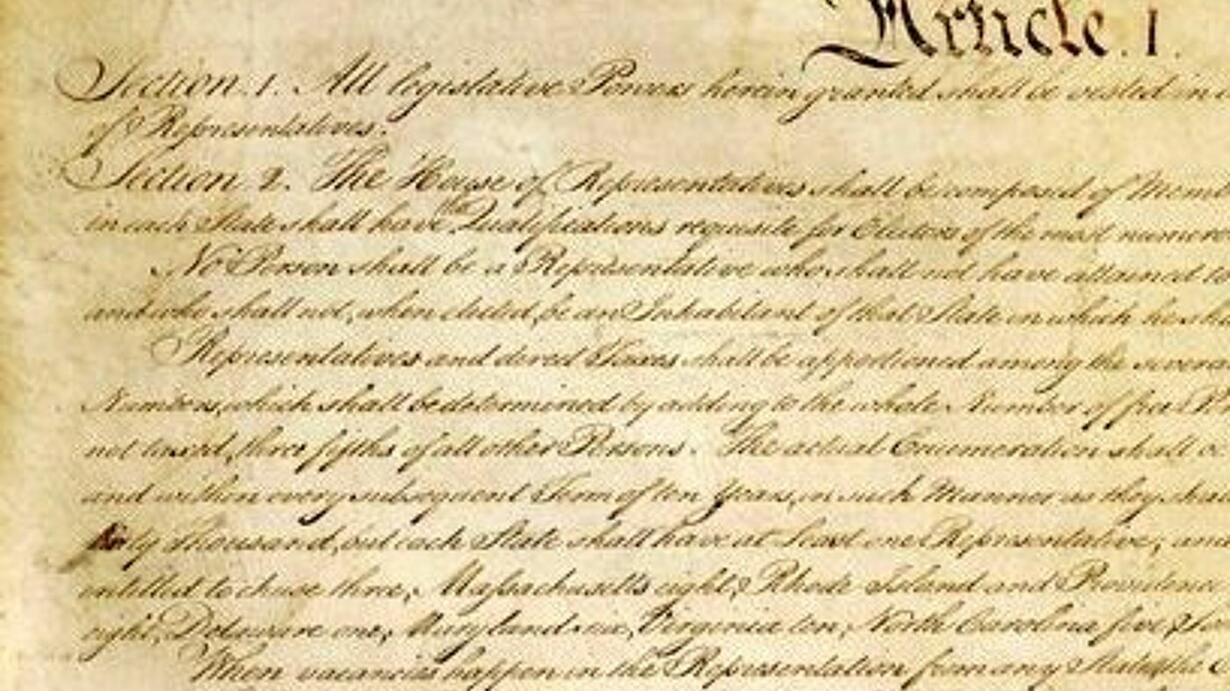 Article. I.
Section. 1. All legislative Powers herein granted shall be vested in a
of Representatives.
Section. 2. The House of Representatives shall be composed of Memb
in each State shall have the Qualifications requisite for Electors of the most numero
No Person shall be a Representative who shall not have attained to
and who shall not, when elected, be an Inhabitant of that State in which he sha
Representatives and direct Taxes shall be apportioned among the severa
Numbers, which shall be determined by adding to the whole Number of free P
not taxed, three fifths of all other Persons. The actual Enumeration shall be
and within every subsequent Term of ten Years, in such Manner as they shal
thirty Thousand, but each State shall have at Least one Representative; and
entitled to chuse three, Massachusetts eight, Rhode Island and Providence
eight, Delaware one, Maryland six, Virginia ten, North Carolina five, So
When vacancies happen in the Representation from any State, the E